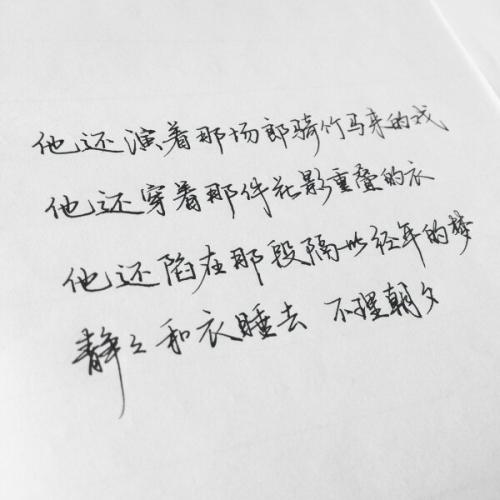 他还演着那场郎骑竹马来的戏
他还穿着那件花影重叠的衣
他还陷在那段隔世经年的梦
静静和衣睡去 不理朝夕